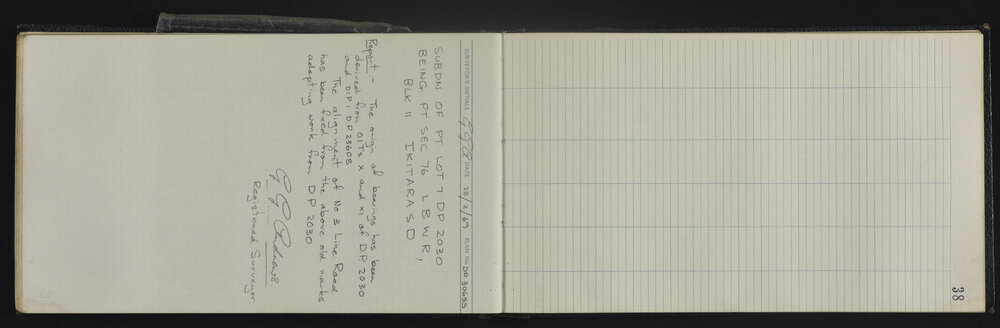 SURVEYOR'S INITIALS GGA DATE 28/2/69 PLAN No DP 30655
SUBDN OF PT LOT 7 DP 2030
BEING PT SEC 76 LBWR,
BLK II IKITARA SD
Report :- The origin of bearings has been
derived from OITs X and XI of DP. 2030
and OIP I DP 23608
The alignment of No 3 Line Road
has been fixed from the above old marks
adopting work from DP 2030
G G Andrews
Registered Surveyor
38